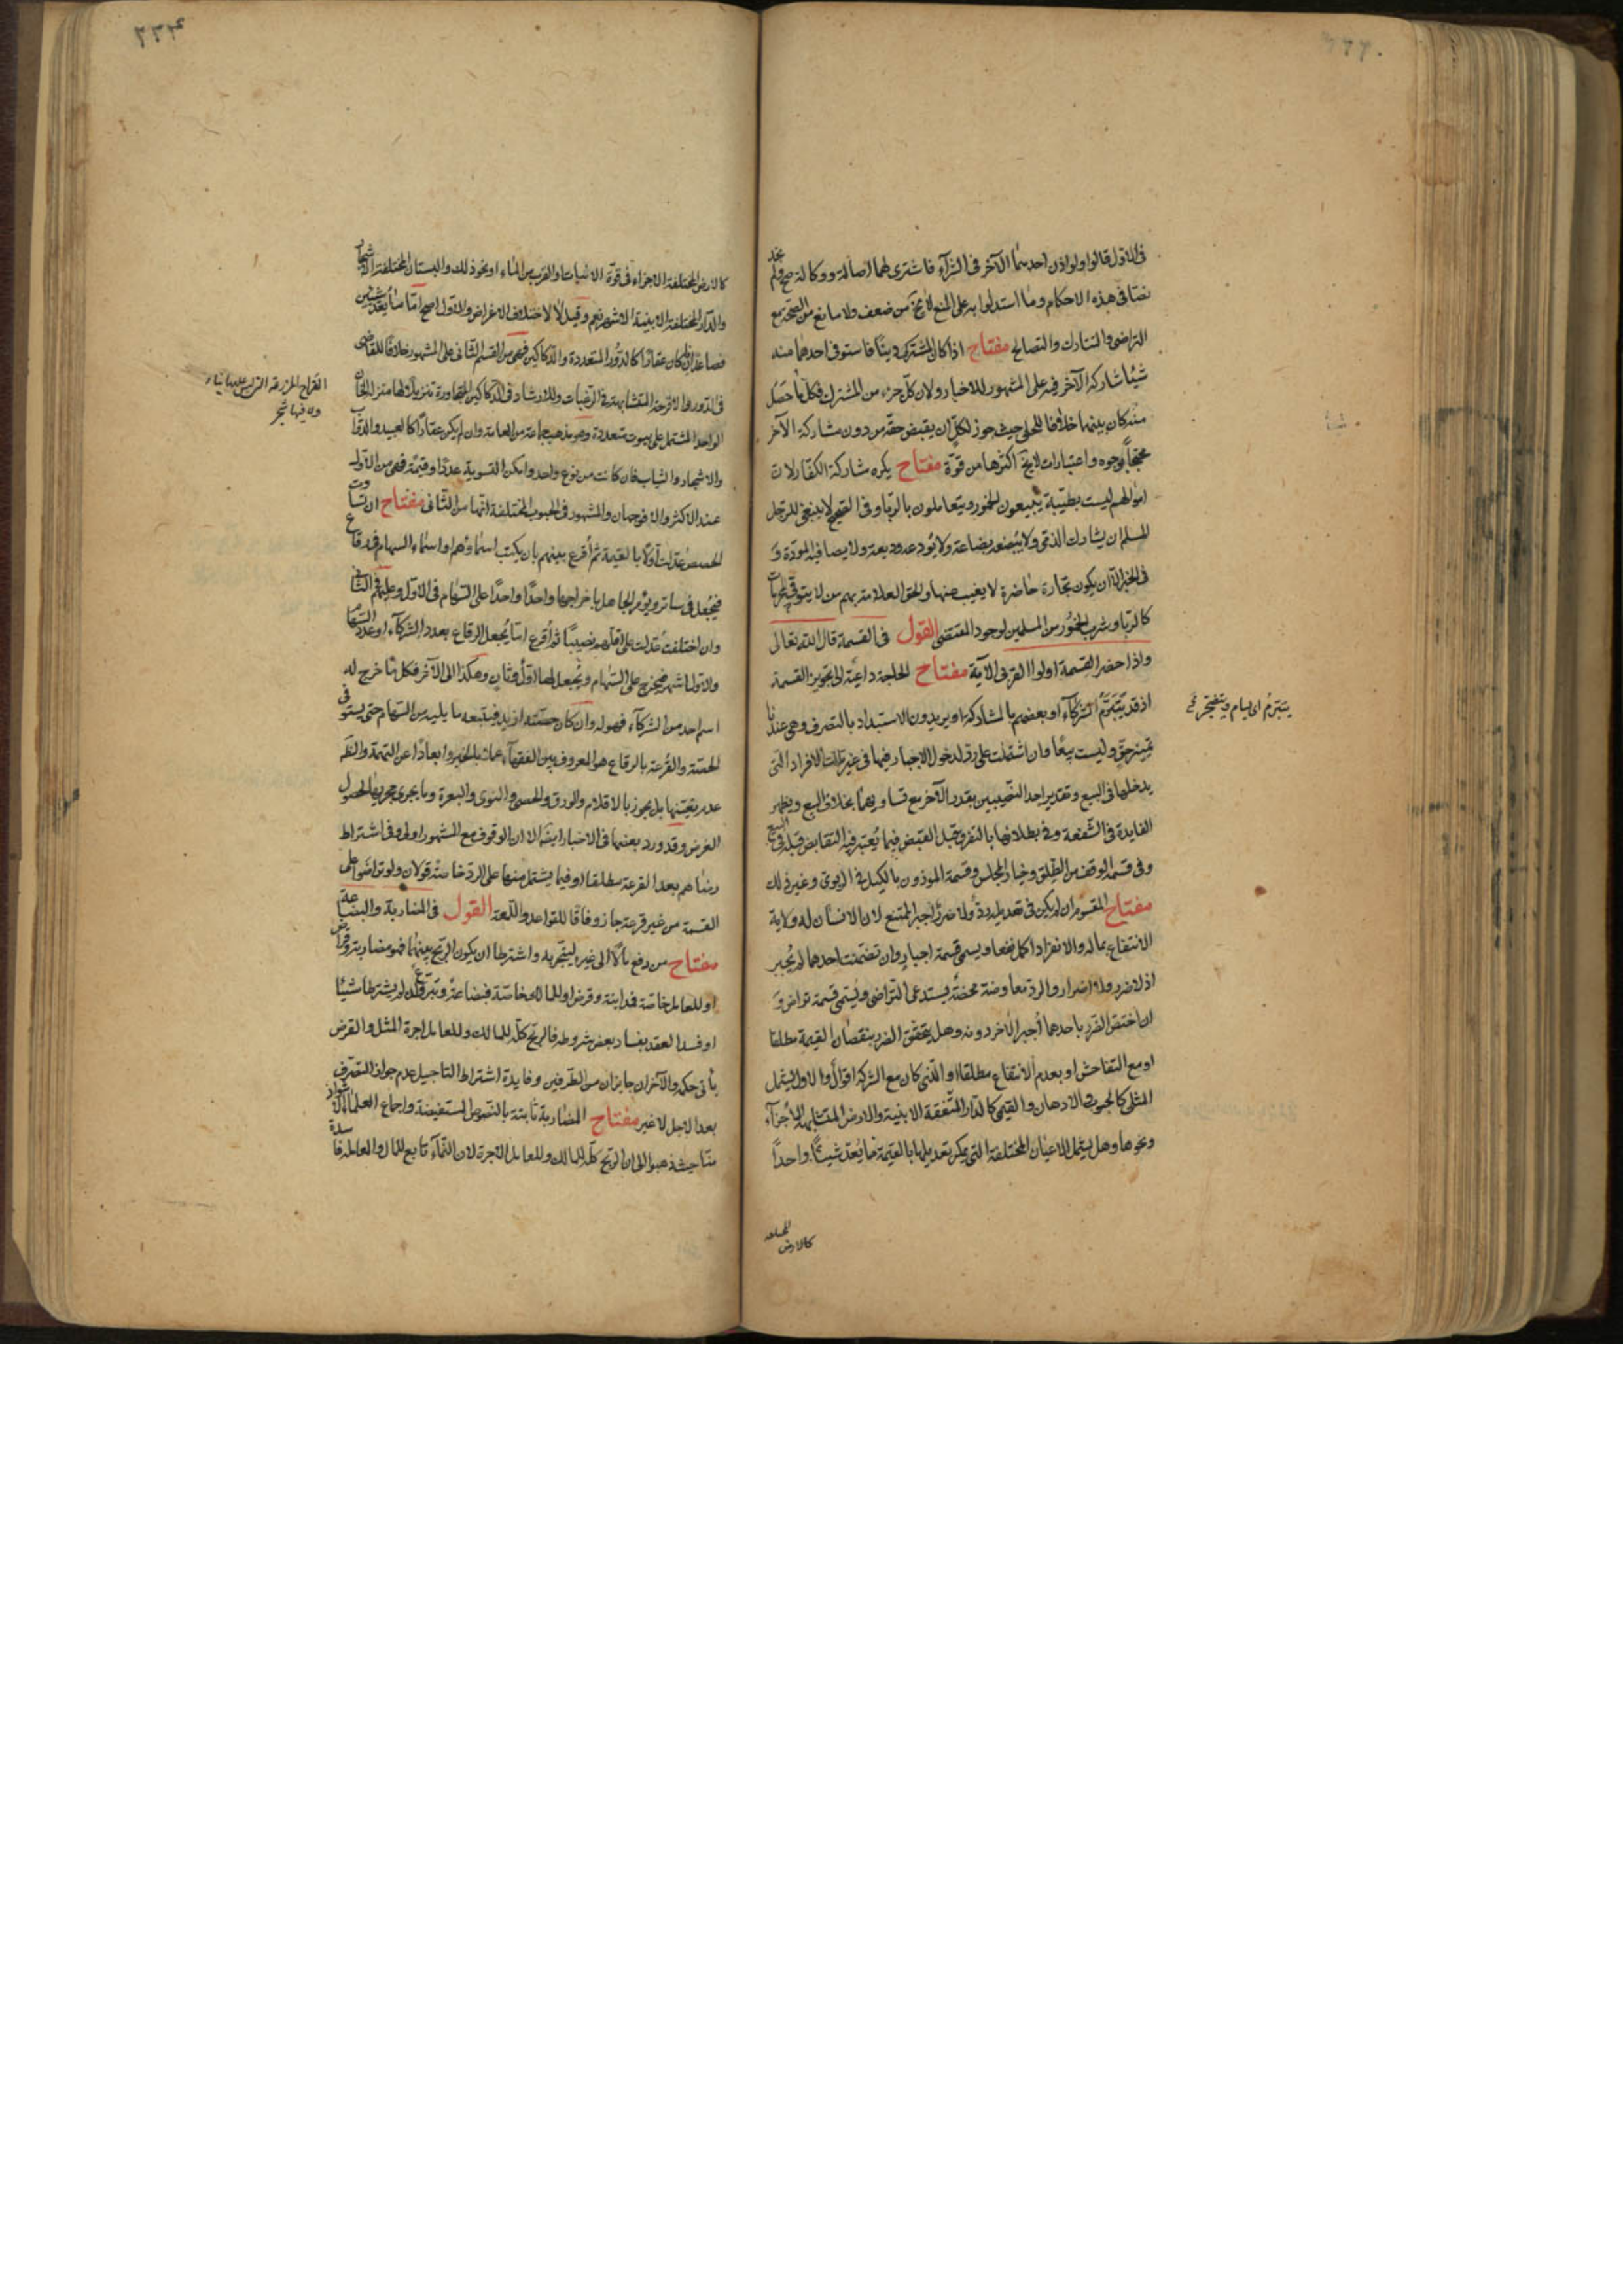 في الاول قالوا ولو اذن احدهما الآخر في الشرآء فاشترى لهما اصالة ووكالة صح ولم نجد
نصّا في هذه الاحكام وما استدلوا به على المنع لا يخ من ضعف ولا مانع من الصحّة مع
التراضى والتشارك والتصالح مفتاح اذا كان المشترك دينًا فاستوفى احدهما منه
شيئا شاركه الآخر فيه على المشهور للاخبار ولان كلّ جزء من المشترك فكل ما حصل
منه كان بينهما خلافا للحلى حيث جوز لكلّ ان يقبض حقّه من دون مشاركة الآخر
محتجاً بوجوه واعتبارات لا يخ اكثرها من قوّة مفتاح يكره مشاركة الكفّار لان
اموالهم ليست بطيّبة يبيعون الخمور ويتعاملون بالربا وفي الصّحيح لا ينبغى للرجل
المسلم ان يشارك الذمّى ولا يُبضعه بضاعة ولا يُودعه وديعة ولا يصافيه المودّة و
في الخبر الّا ان يكون تجارة حاضرة لا يغيب عنها والحق العلامة بهم من لا يتوقى المحرمات
كالرّبا وشرب الخمُور من المسلمين لوجود المقتضى القول في القسمة قال الله تعالى
واذا حضر القسمة اولوا القربى الآية مفتاح الحاجة داعية الى تجويز القسمة
اذ قد يتبرّمُ الشركآء او بعضهم بالمشاركة او يريدون الاستبداد بالتصرف وهى عندنا
تمييز حقّ وليست بيعًا وان اشتملت على ردّ لدخول الاجبار فيها في غير تلك الافراد التى
يدخلها في البيع وتقدير احد النّصيبين بقدر الآخر مع تساويهما بخلاف البيع ويظهر
الفايدة في الشّفعة وفي بطلانها بالتفرق قبل القبض فيما يُعتبر فيه التقابض قبله في البيع
وفي قسمة الوقف من الطّلق وخيار المجلس وقسمة الموزون بالكيل في الربوى وغير ذلك
مفتاح المقسوم ان لم يكن في تعديله ردّ ولا ضرر اجبر الممتنع لان الانسان له ولاية
الانتفاع بماله والانفراد اكمل نفعا ويسمى قسمة اجبارٍ وان تضمّنت احدهما لم يُجبر
اذ لا ضرر ولا اضرار والردّ معاوضة محضة يستدعى التّراضى ويُسمّى قسمة تراض و
ان اختصّ الضّرر باحدهما اُجبر الآخر دونه وهل يتحقق الضرر بنقصان القيمة مطلقا
او مع التفاحش او بعدم الانتفاع مطلقا او الذّى كان مع الشركة اقوالٌ والاول يشمل
المثلى كالحبوب والادهان والقيمى كالدّار المتّفقة الابنية والارض المتشابهة الاجزآء
ونحوها وهل يشمل الاعيان المختلفة التى يمكن تعديلها بالقيمة مما يُعدّ شيئًا واحدًا
كالارض
يتبرّمُ اى يسام ويتضجّر
كالارض المختلفة الاجزاء في قوّة الانبات والقرب من الماء او نحو ذلك والبستان المختلفة الاشجار
والدّار المختلفة الابنية الاشهر نعم وقيل لا لاختلاف الاغراض والاول اصح امّا ما يُعدّ شيئين
فصاعدا فان كان عقارًا كالدّور المتعددة والدّكاكين فهى من القسم الثّانى على المشهور خلافًا للقاضى
في الدّور والاقرحة المتشابهة في الرّغبات وللارشاد في الدّكاكين المتجاورة تنزيلًا لها منزلة الخان
الواحد المشتمل على بيوت متعددة وهو مذهب جماعة من العامة وان لم يكن عقارًا كالعبيد والدواب
والاشجار والثياب فان كانت من نوع واحد وامكن التسوية عددًا وقيمًة فهى من الاول
عند الاكثر والا فوجهان والمشهور في الحبوب المختلفة انّها من الثّانى مفتاح ان تساوت
الحصص عدّلت اوّلًا بالقيمة ثم اُقرع بينهم بان يكتب اسماؤهم او اسماء السهام في رقاع
فيُجعل في ساتر ويؤمر الجاهل باخراجها واحدًا واحدًا على السّهام في الاوّل وعليهم في الثّانى
وان اختلفت عُدّلت على اقلّهم نصيبًا ثم اُقرع امّا يُجعل الرقاع بعدد الشّركآء او عدد السّهام
والاول اشهر فيخرج على السّهام ويُجعل لها اوّل وثانٍ وهكذا الى الآخر فكل ما خرج له
اسم احد من الشركآء فهو له وان كان حصّته ازيد فيتبعه ما يليه من السّهام حتى يستوفى
الحصّة والقُرعة بالرقاع هو المعروف بين الفقهآء عملا بالخبر وابعادًا عن التهمة والظّ
عدم تعيّنها بل يجوز بالاقلام والورق والحصى والنوى والبعرة وما يجرى مجريها لحصول
الغرض وقد ورد بعضها في الاخبار ايضا الا ان الوقوف مع المشهور اولى وفى اشتراط
رضاهم بعد القرعة مطلقا او فيما يشتمل منها على الردّ خاصّة قولان ولو تراضوا على
القسمة من غير قرعة جاز وفاقًا للقواعد واللّمعة القول في المضاربة والبضاعة
مفتاح من دفع مالًا الى غيره ليتّجر به واشترطا ان يكون الربّح بينهما فهو مضاربة وقراض
او للعامل خاصّة فمداينة وقرض او للمالك خاصّة فبضاعة وتبرّع وان لم يشترطا شيئًا
او فسد العقد بفساد بعض شروطه فالربّح كلّه للمالك وللعامل اجرة المثل والقرض
يأتى حكمه والآخران جايزان من الطّرفين وفايدة اشتراط التاجيل عدم جواز التصرّف
بعد الاجل لا غير مفتاح المضاربة ثابتة بالنّصوص المستفيضة واجماع العلماء الا شواذ
منّا حيث ذهبوا الى ان الربّح كلّه للمالك وللعامل الاجرة لان النّمآء تابع للمال والمعاملة فاسدة